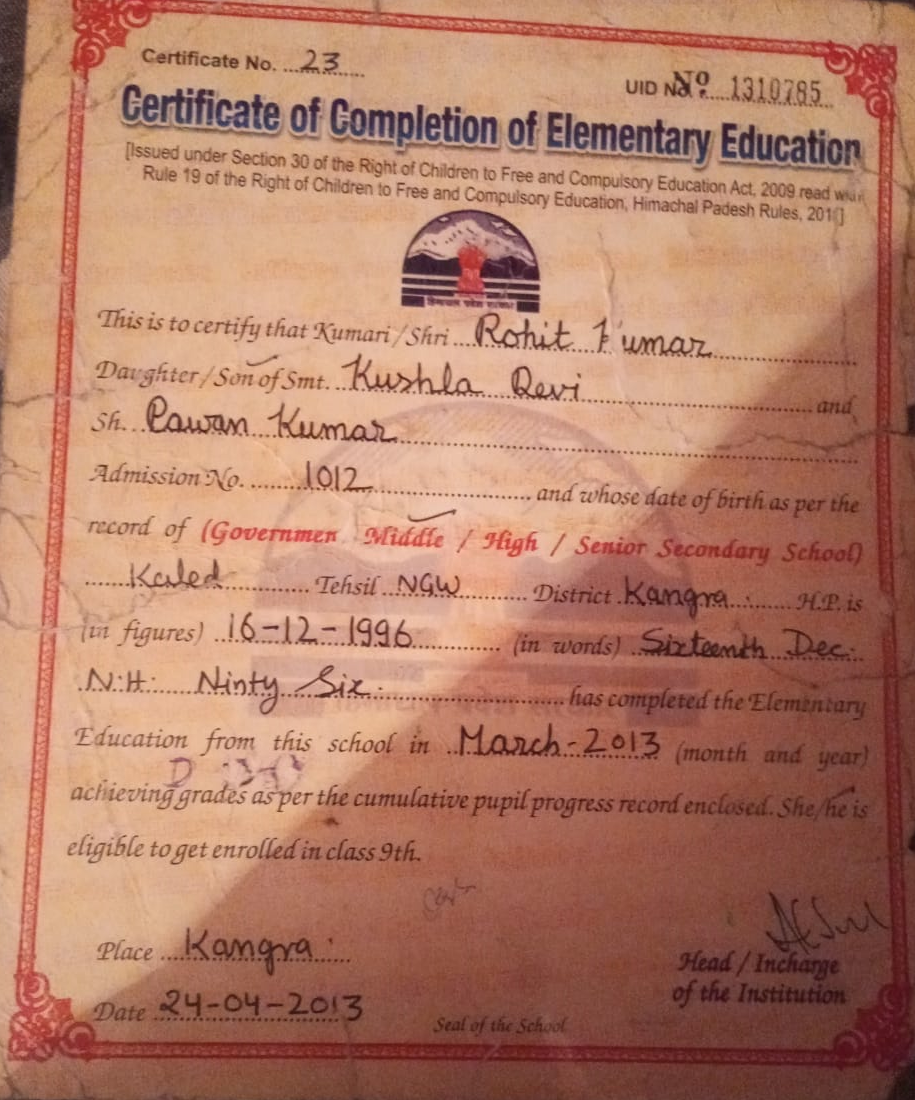 Certificate No. ...23......
UID No. Nº 1310785
Certificate of Completion of Elementary Education
[Issued under Section 30 of the Right of Children to Free and Compulsory Education Act, 2009 read with
Rule 19 of the Right of Children to Free and Compulsory Education, Himachal Padesh Rules, 201]
हिमाचल प्रदेश सरकार
This is to certify that Kumari / Shri ...Rohit Kumar......
Daughter / Son of Smt. ..Kushla Devi...... and
Sh. ..Pawan Kumar......
Admission No. ......1012...... and whose date of birth as per the
record of (Governmen Middle / High / Senior Secondary School)
......Kaled...... Tehsil ..NGW...... District .Kangra...... H.P. is
(in figures) ..16-12-1996...... (in words) ..Sixteenth Dec.
.N.H. Ninty Six....... has completed the Elementary
Education from this school in ..March-2013 (month and year)
D
achieving grades as per the cumulative pupil progress record enclosed. She/he is
eligible to get enrolled in class 9th.
Place ....Kangra....
Head / Incharge
of the Institution
Date 24-04-2013
Seal of the School